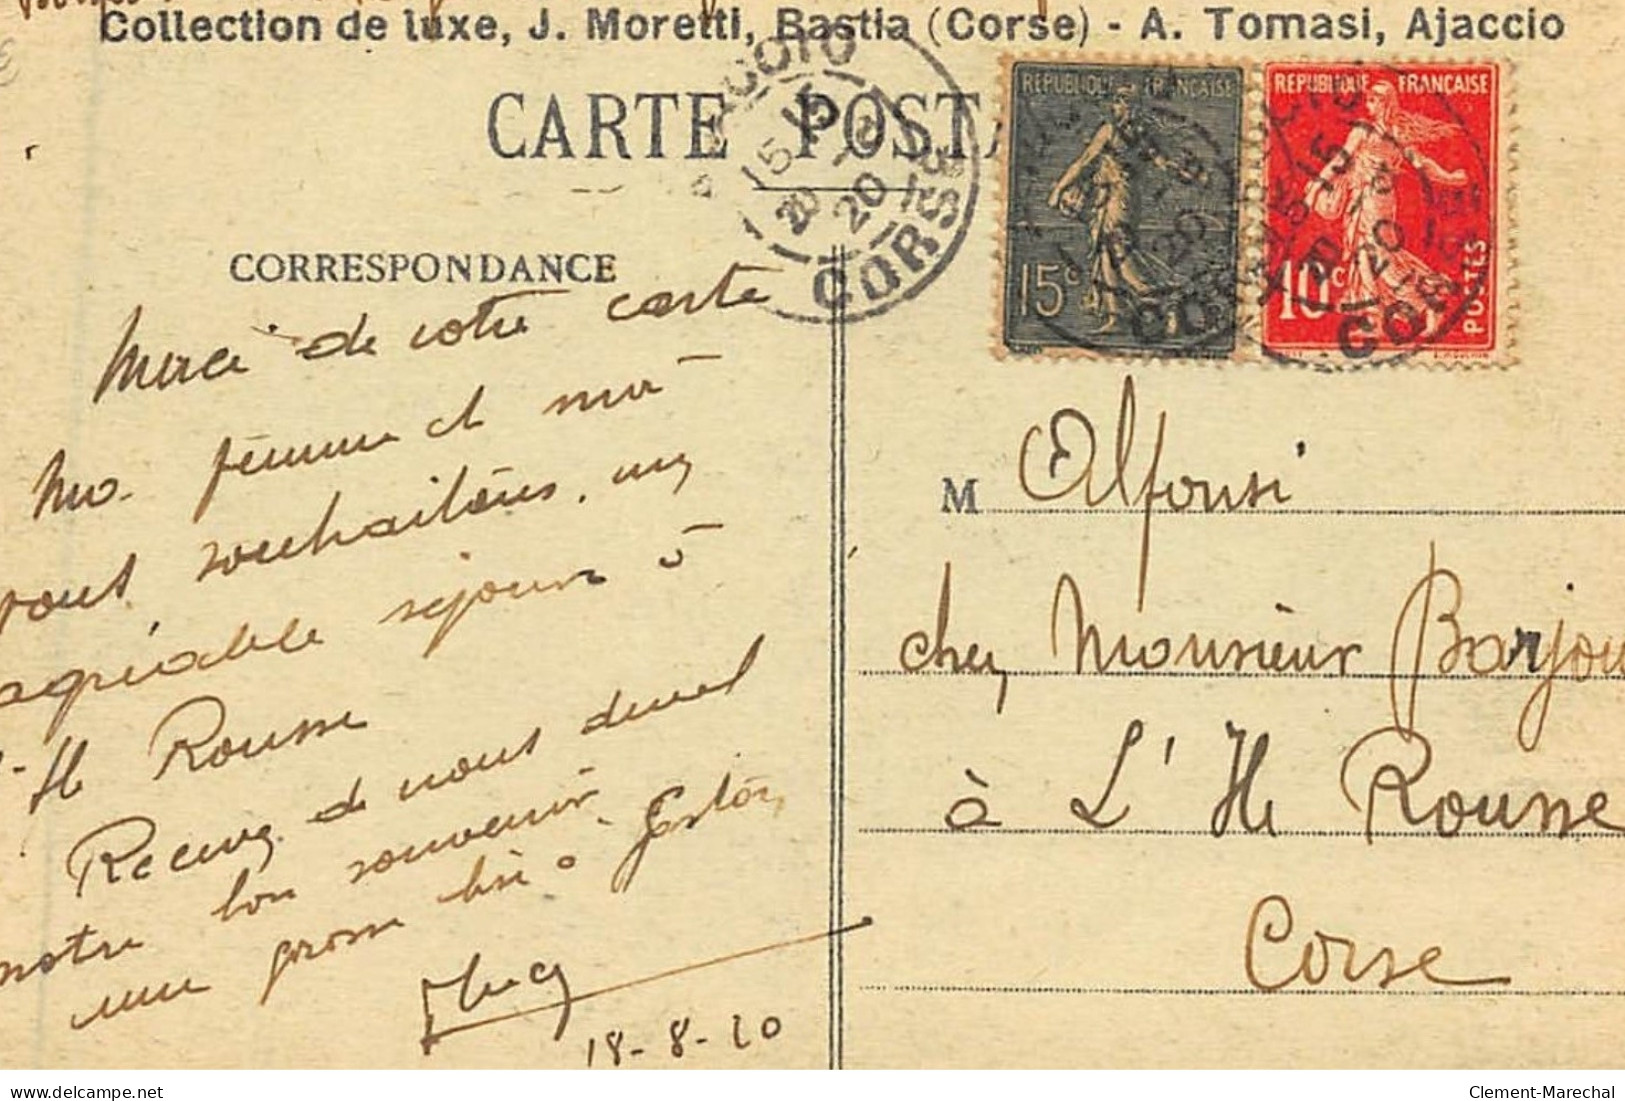 Collection de luxe, J. Moretti, Bastia (Corse) - A. Tomasi, Ajaccio
CARTE POSTA
CORRESPONDANCE
REPUBLIQUE FRANÇAISE
15c
REPUBLIQUE FRANÇAISE
10c
POSTES
CORSE
15
20
20
Merci de votre carte
Ma femme et moi
vous souhaitons un
agréable séjour à
Ile Rousse
Recevez de nous deux
notre bon souvenir.
une grosse bise à Gaston
18-8-20
M Alfonsi
chez Monsieur Barjou
à L'Ile Rousse
Corse
delcampe.net
Clement-Marechal